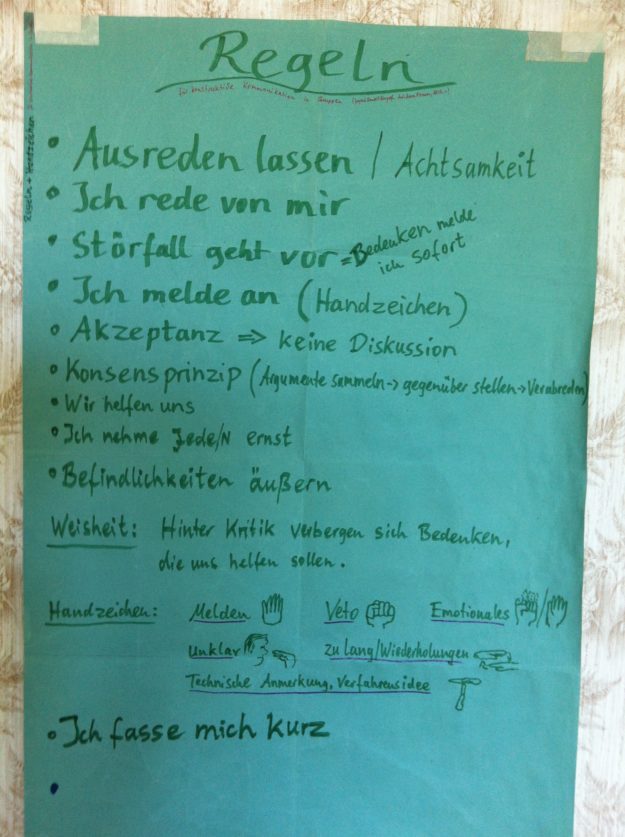 Regeln
für konstruktive Kommunikation in Gruppen
• Ausreden lassen / Achtsamkeit
• Ich rede von mir
• Störfall geht vor = Bedenken melde
ich sofort
• Ich melde an (Handzeichen)
• Akzeptanz => keine Diskussion
• Konsensprinzip (Argumente sammeln -> gegenüber stellen -> Verabreden)
• Wir helfen uns
• Ich nehme Jede/N ernst
• Befindlichkeiten äußern
Weisheit: Hinter Kritik verbergen sich Bedenken,
die uns helfen sollen.
Handzeichen: Melden Veto Emotionales /
Unklar zu Lang/Wiederholungen
Technische Anmerkung, Verfahrensidee
• Ich fasse mich kurz
•
Regeln + Handzeichen